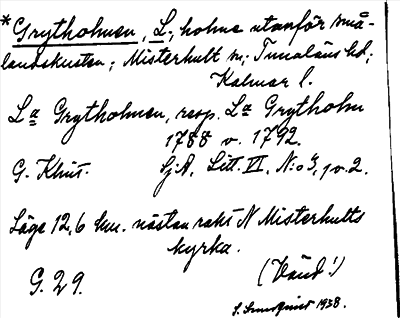 *Grytholmen, L., holme utanför små-
landskusten; Misterhult sn; Tunaläns hd;
Kalmar l.
La Grytholmen, resp. La Grytholm
1788 o. 1792.
G. Khist. SjA, Litt. VI, N:o 3, 1 o. 2.
Läge 12,6 km. nästan rakt N Misterhults
kyrka.
G. 29. (Vänd!)
S. 1938.